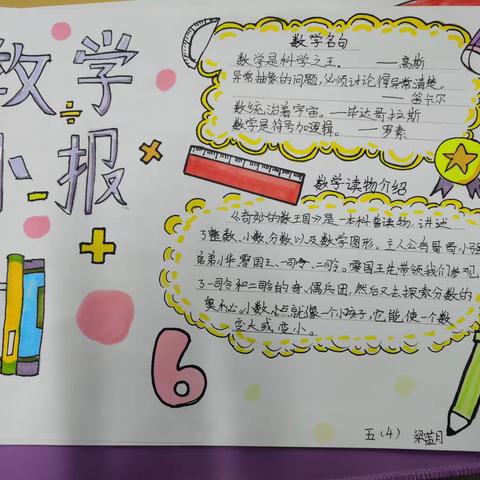 数学
小报
数学名句
数学是科学之王。 ——高斯
异常抽象的问题,必须讨论得异常清楚。
——笛卡尔
数统治着宇宙。——毕达哥拉斯
数学是符号加逻辑。 ——罗素
数学读物介绍
《奇妙的数王国》是一本科普读物,讲述
了整数、小数、分数以及数学图形。主人公有哥哥小强
弟弟小华,零国王、一司令、二司令。零国王先带领我们参观
了一司令和二司令的奇、偶兵团,然后又去探索分数的
奥秘。小数点就像一个小孩子,它能使一个数
变大或变小。
6
五(4) 梁蓝月